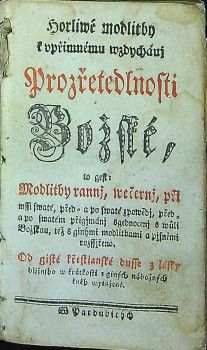 Horliwé modlitby
k vpřimnému wzdychánj
Prozřetedlnosti
Božské,
to gest:
Modlitby rannj, wečernj, při
mssi swaté, před- a po swaté zpowědj, před-
a po swatém přigjmánj sgednocenj s wůlj
Božskau, též s ginými modlitbami a pjsněmi
rozssjřené.
Od gisté křestianské dusse z lásky
bližnjho w krátkosti z giných nábožných
kněh wytažené.
W Pardubicých